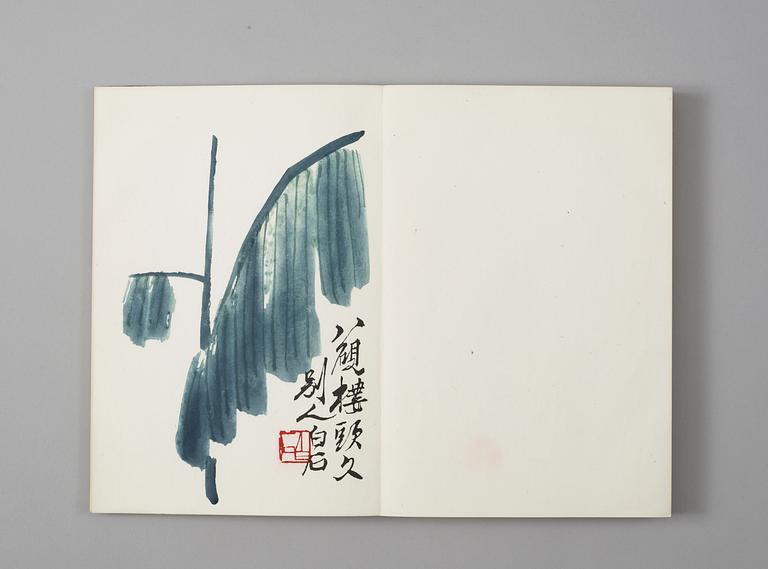 八硯樓頭久
別人白石